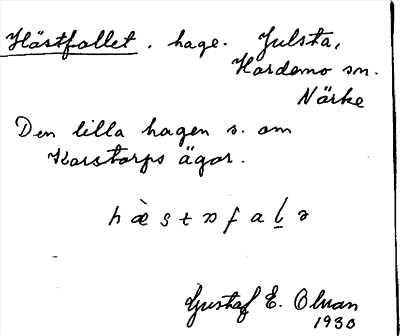 Hästfallet. hage. Julsta,
Hardemo sn.
Närke
Den lilla hagen s. om
Korstorps ägor.
Gustaf E. Olsson
1930